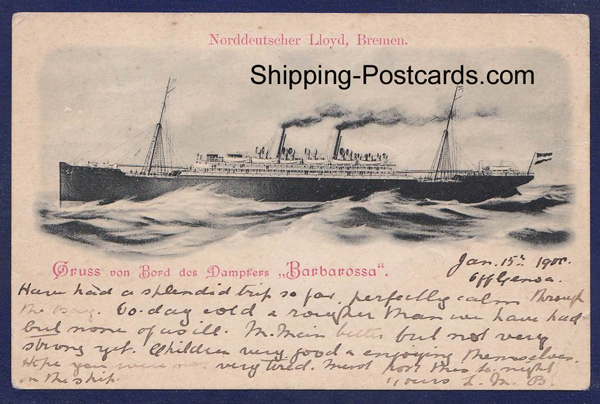 Norddeutscher Lloyd, Bremen.
Shipping-Postcards.com
Gruss von Bord des Dampfers „Barbarossa“.
Jan. 15th 1900.
Off Genoa.
Have had a splendid trip so far, perfectly calm through
the Bay. To-day cold & rougher than we have had
but none of us ill. M. better but not very
strong yet. Children very good & enjoying themselves.
Hope you were not very tired. Must post this to-night
on the ship. Yours L. M. B.